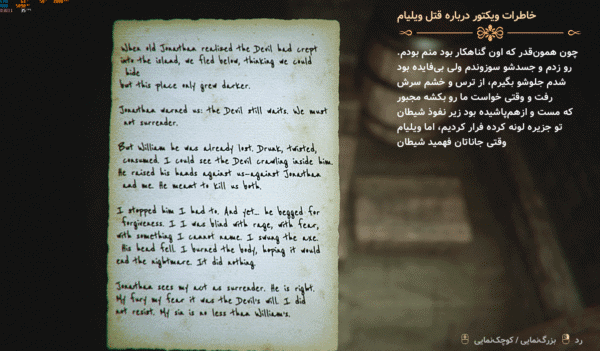 When old Jonathan realised the Devil had crept
into the island, we fled below, thinking we could
hide
but this place only grew darker.
Jonathan warned us: the Devil still waits. We must
not surrender.
But William he was already lost. Drunk, twisted,
consumed. I could see the Devil crawling inside him.
He raised his hands against us-against Jonathan
and me. He meant to kill us both.
I stopped him I had to. And yet... he begged for
forgiveness. I I was blind with rage, with fear,
with something I cannot name. I swung the axe.
His head fell. I burned the body, hoping it would
end the nightmare. It did nothing.
Jonathan sees my act as surrender. He is right.
My fury my fear it was the Devil's will. I did
not resist. My sin is no less than William's.
خاطرات ویکتور درباره قتل ویلیام
چون همون‌قدر که اون گناهکار بود منم بودم.
رو زدم و جسدشو سوزوندم ولی بی‌فایده بود
شدم جلوشو بگیرم، از ترس و خشم سرش
رفت و وقتی خواست ما رو بکشه مجبور
که مست و ازهم‌پاشیده بود زیر نفوذ شیطان
تو جزیره لونه کرده فرار کردیم، اما ویلیام
وقتی جاناتان فهمید شیطان
بزرگ‌نمایی / کوچک‌نمایی
رد